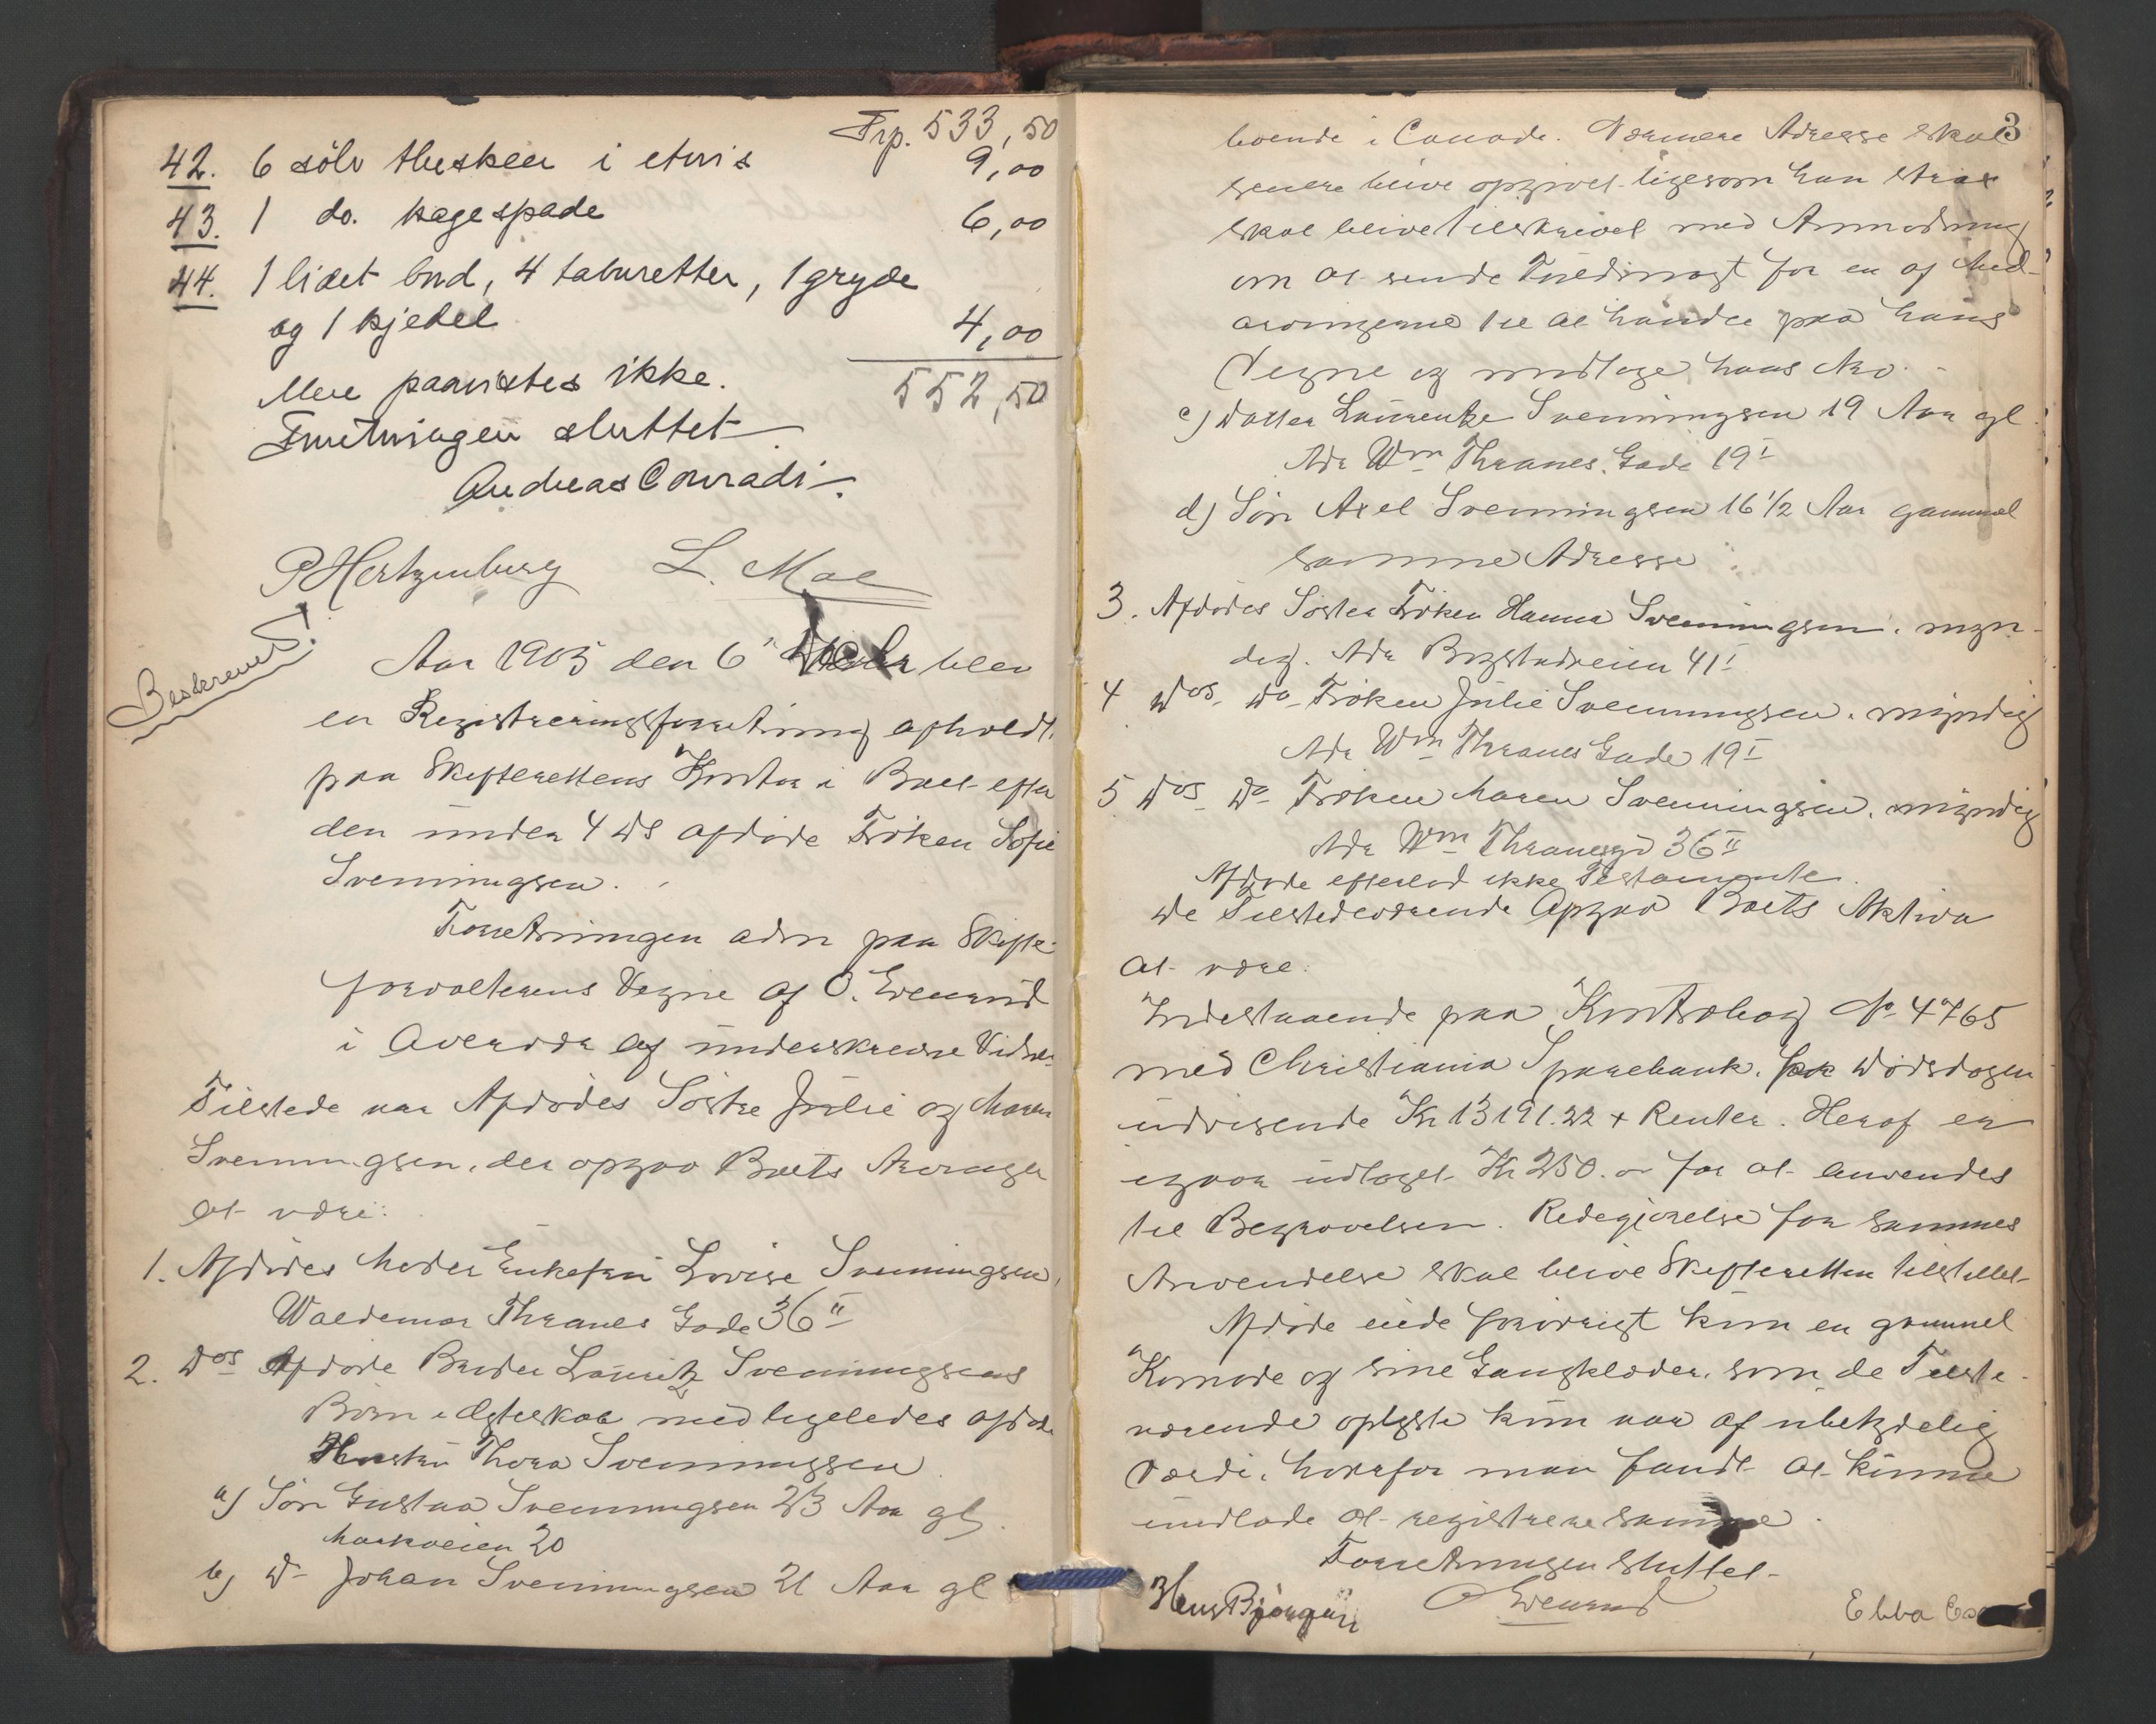 Trp. 533,50
42. 6 sölv theskeer i etuis 9,00
43. 1 do. kagespade 6,00
44. 1 lidet bord, 4 taburetter, 1 gryde
og 1 kjedel 4,00
552,50
Mere paavistes ikke.
Forretningen sluttet
Andreas Conradi
P Hertzenberg L. Moe
Beskrevet!
Aar 1905 den 6' blev
en Registreringsforretning afholdt
paa Skifterettens Kontor i Boet efter
den under 4 ds afdøde Frøken Sofie
Svenningsen.
Forretningen adm paa Skifte-
forvalterens Vegne af O. Evenrud
i Overvær af underskrevne Vidner
Tilstede var Afdødes Søstre Julie og Maren
Svenningsen, der opgav Boets Arvinger
at være:
1. Afdødes Moder Enkefru Lovise Svenningsen,
Waldemar Thranes Gade 36 II
2. Dos Afdøde Broder Lauritz Svenningsens
Børn i Ægteskab med ligeledes afdøde
Hustru Thora Svenningsen
a) Søn Gustav Svenningsen 23 Aar gl.
Markveien 20
b) Do Johan Svenningsen 21 Aar gl
3
boende i Canada. Nærmere Adresse skal
senere blive opgivet ligesom han strax
skal blive tilskrevet med Anmodning
om at sende Fuldmagt for en af Med-
arvingerne til at handle paa hans
Vegne og modtage hans Arv.
c) Datter Laurentze Svenningsen 19 Aar gl.
Adr Wm Thranes Gade 19 I
d) Søn Axel Svenningsen 16 1/2 Aar gammel
samme Adresse
3. Afdødes Søster Frøken Hanna Svenningsen. myn-
dig. Adr Bygstadveien 41 I
4 Dos Do Frøken Julie Svenningsen. myndig
Adr Wm Thranes Gade 19 I
5 Dos Do Frøken Maren Svenningsen. myndig
Adr Wm Thranesgd 36 II
Afdøde efterlod ikke Testamente.
De Tilstedeværende Opgav Boets Aktiva
at være:
Indestaaende paa Kontrabog No 4765
med Christiania Sparebank. paa Dødsdagen
udvisende Kr 13191.22 + Renter. Heraf er
igaar udtaget Kr 250.- for at anvendes
til Begravelsen. Redegjørelse for sammes
Anvendelse skal blive Skifteretten tilstillet
Afdøde eiede forøvrigt kun en gammel
Komode og sine Gangklæder, som de Tilste-
værende oplyste kun var af ubetydelig
Værdi, hvorfor man fandt at kunne
undlade at registrere samme.
Forretningen sluttet
O Evenrud
Ebba